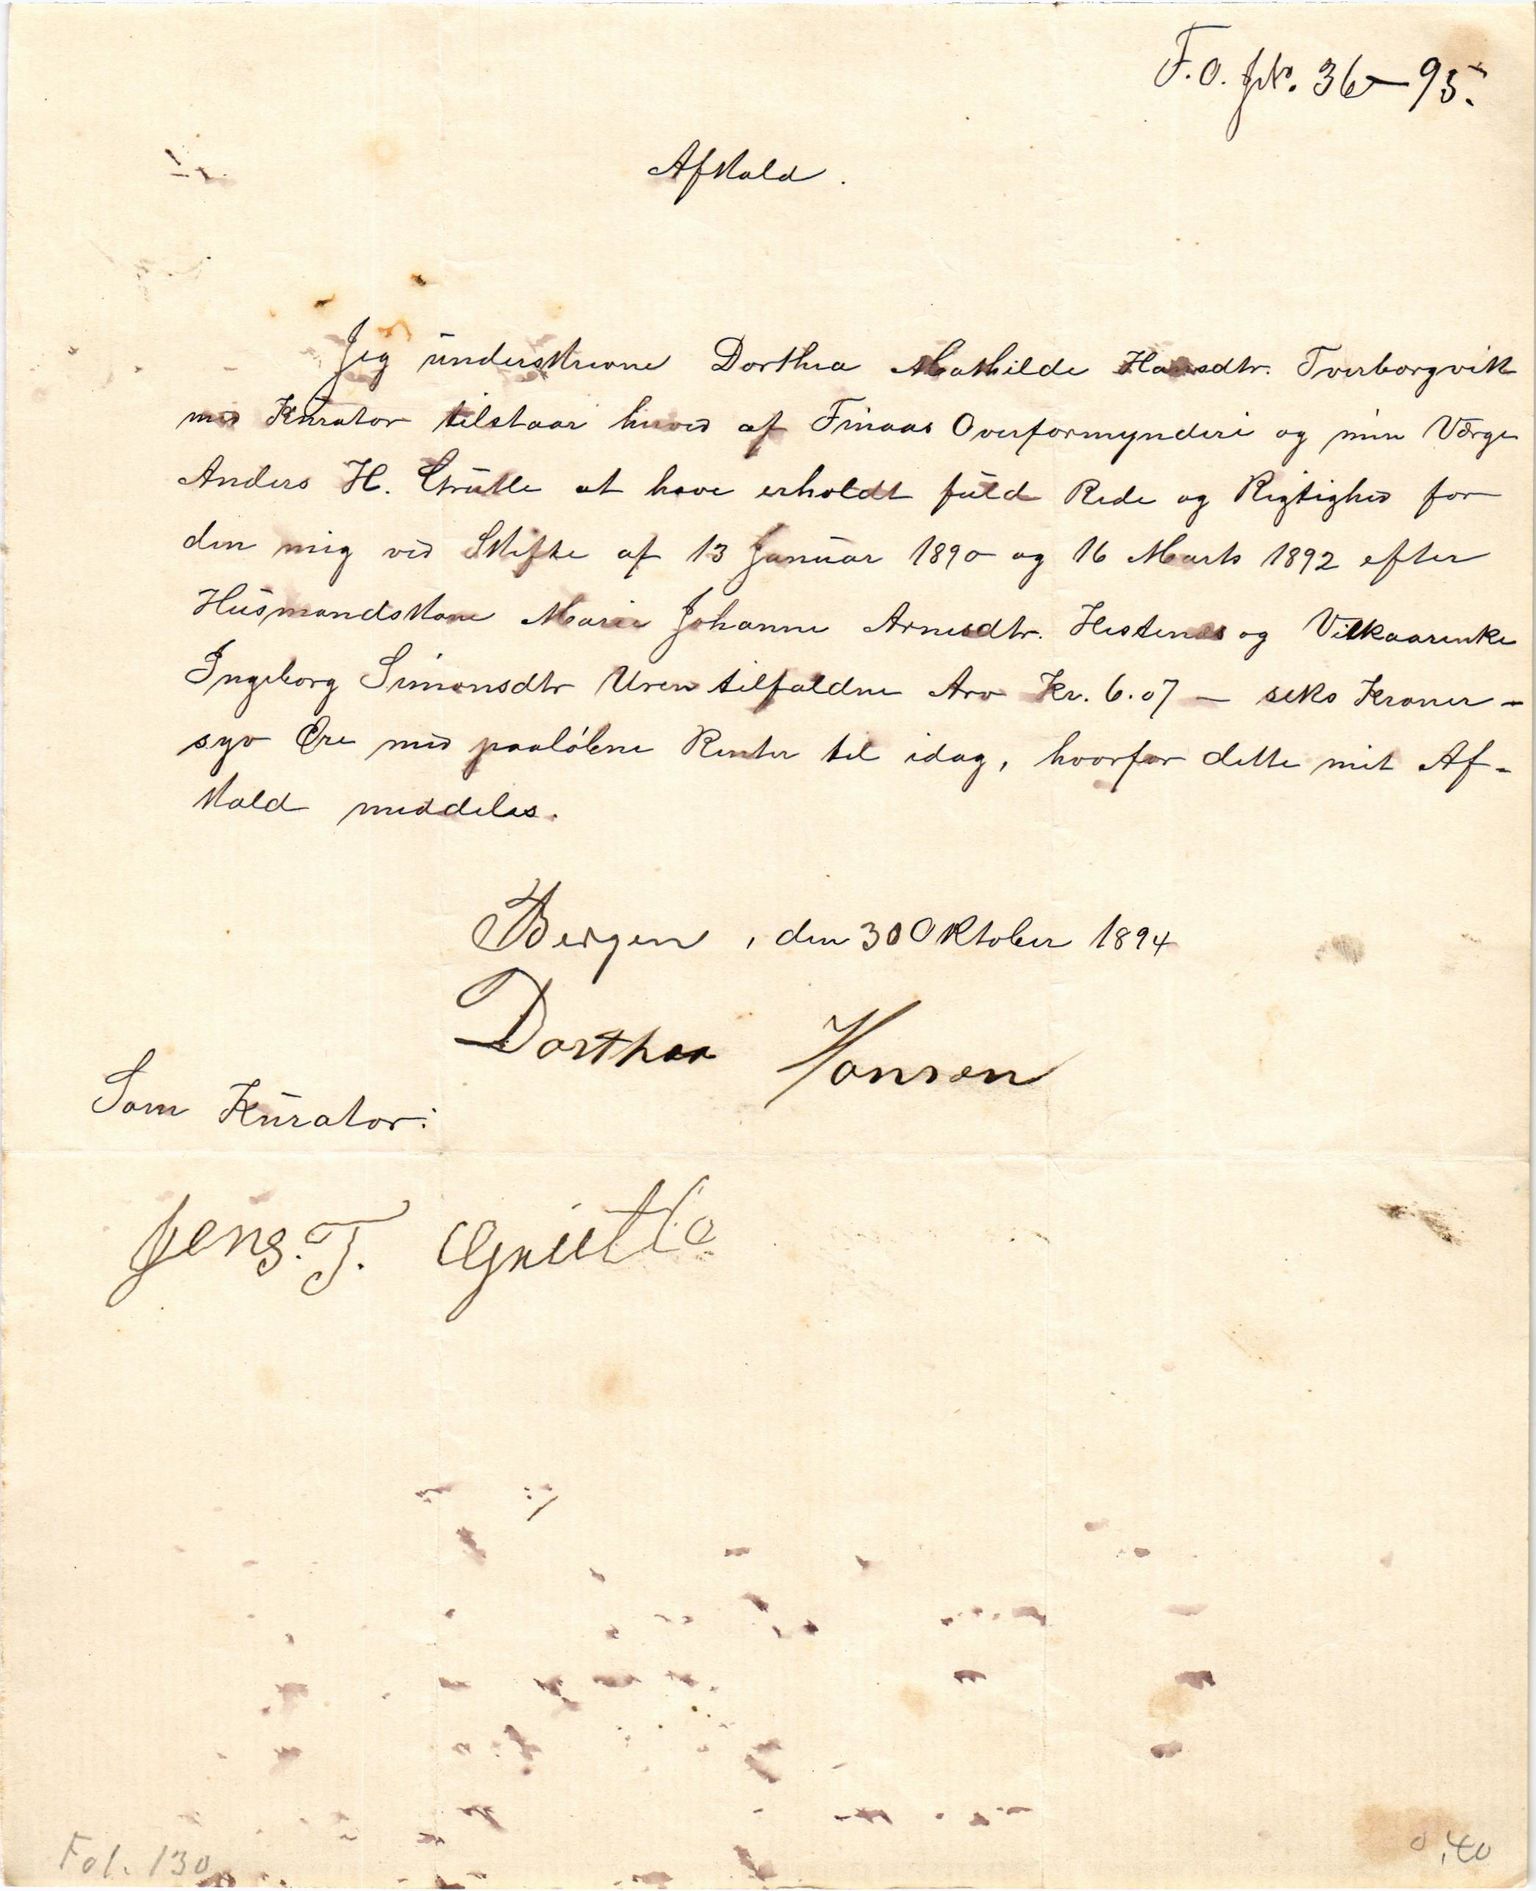 F.O. JN. 36-95.
Afkald.
Jeg underskrevne Dorthea Mathilde Hansdtr. Tverborgvik
med Kurator tilstaar herved af Finaas Overformynderi og min Værge
Anders H. Grutle at have erholdt fuld Rede og Rigtighed for
den mig ved Skifte af 13 Januar 1890 og 16 Marts 1892 efter
Husmandskone Marie Johanne Arnesdtr. Hestenes og Vilkaarenke
Ingeborg Simonsdtr Uren tilfaldne Arv Kr. 6.07 — seks Kroner -
syv Øre med paaløbne Renter til idag, hvorfor dette mit Af-
kald meddeles.
Bergen, den 30 Oktober 1894
Dorthea Hansen
Som Kurator:
Jens. T. Grutle
Fol. 130
0,40